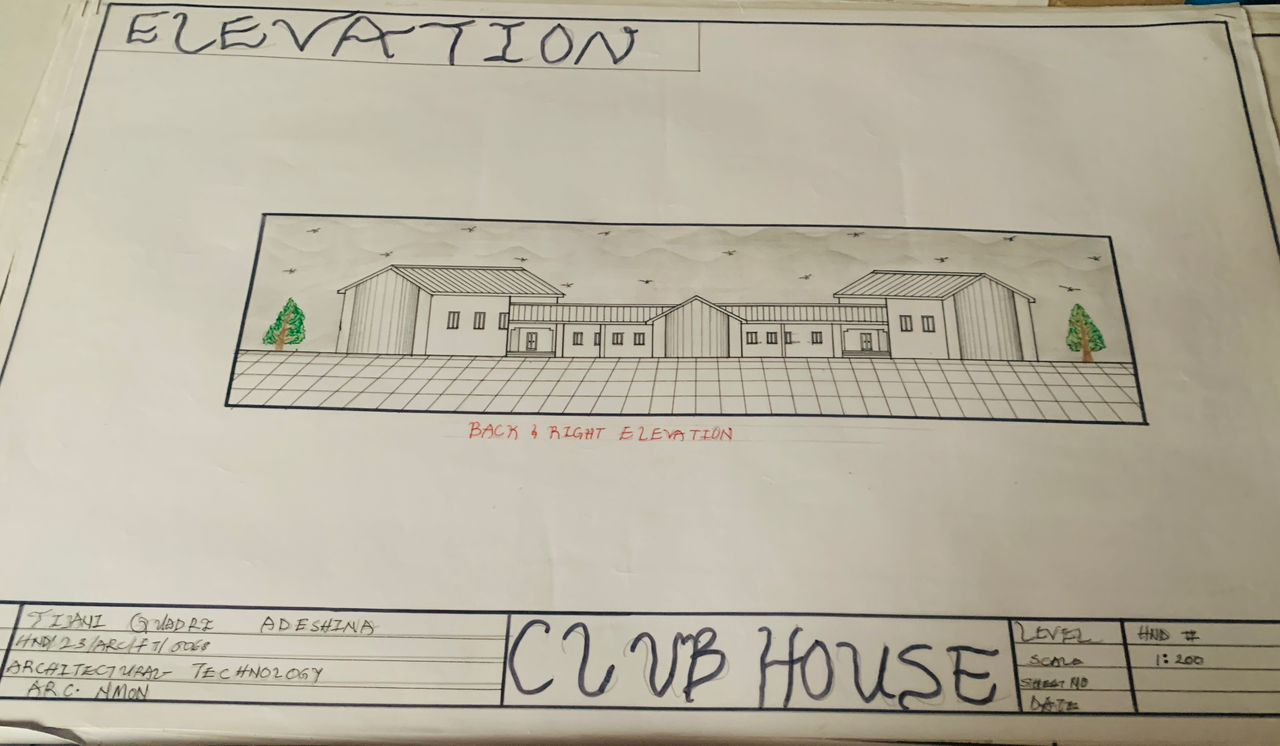 ELEVATION
BACK & RIGHT ELEVATION
TIJANI QUADRI ADESHINA
HND/23/ARC/FT/0068
ARCHITECTURAL TECHNOLOGY
ARC. NMON
CLUB HOUSE
LEVEL HND II
SCALE 1:200
SHEET NO
DATE